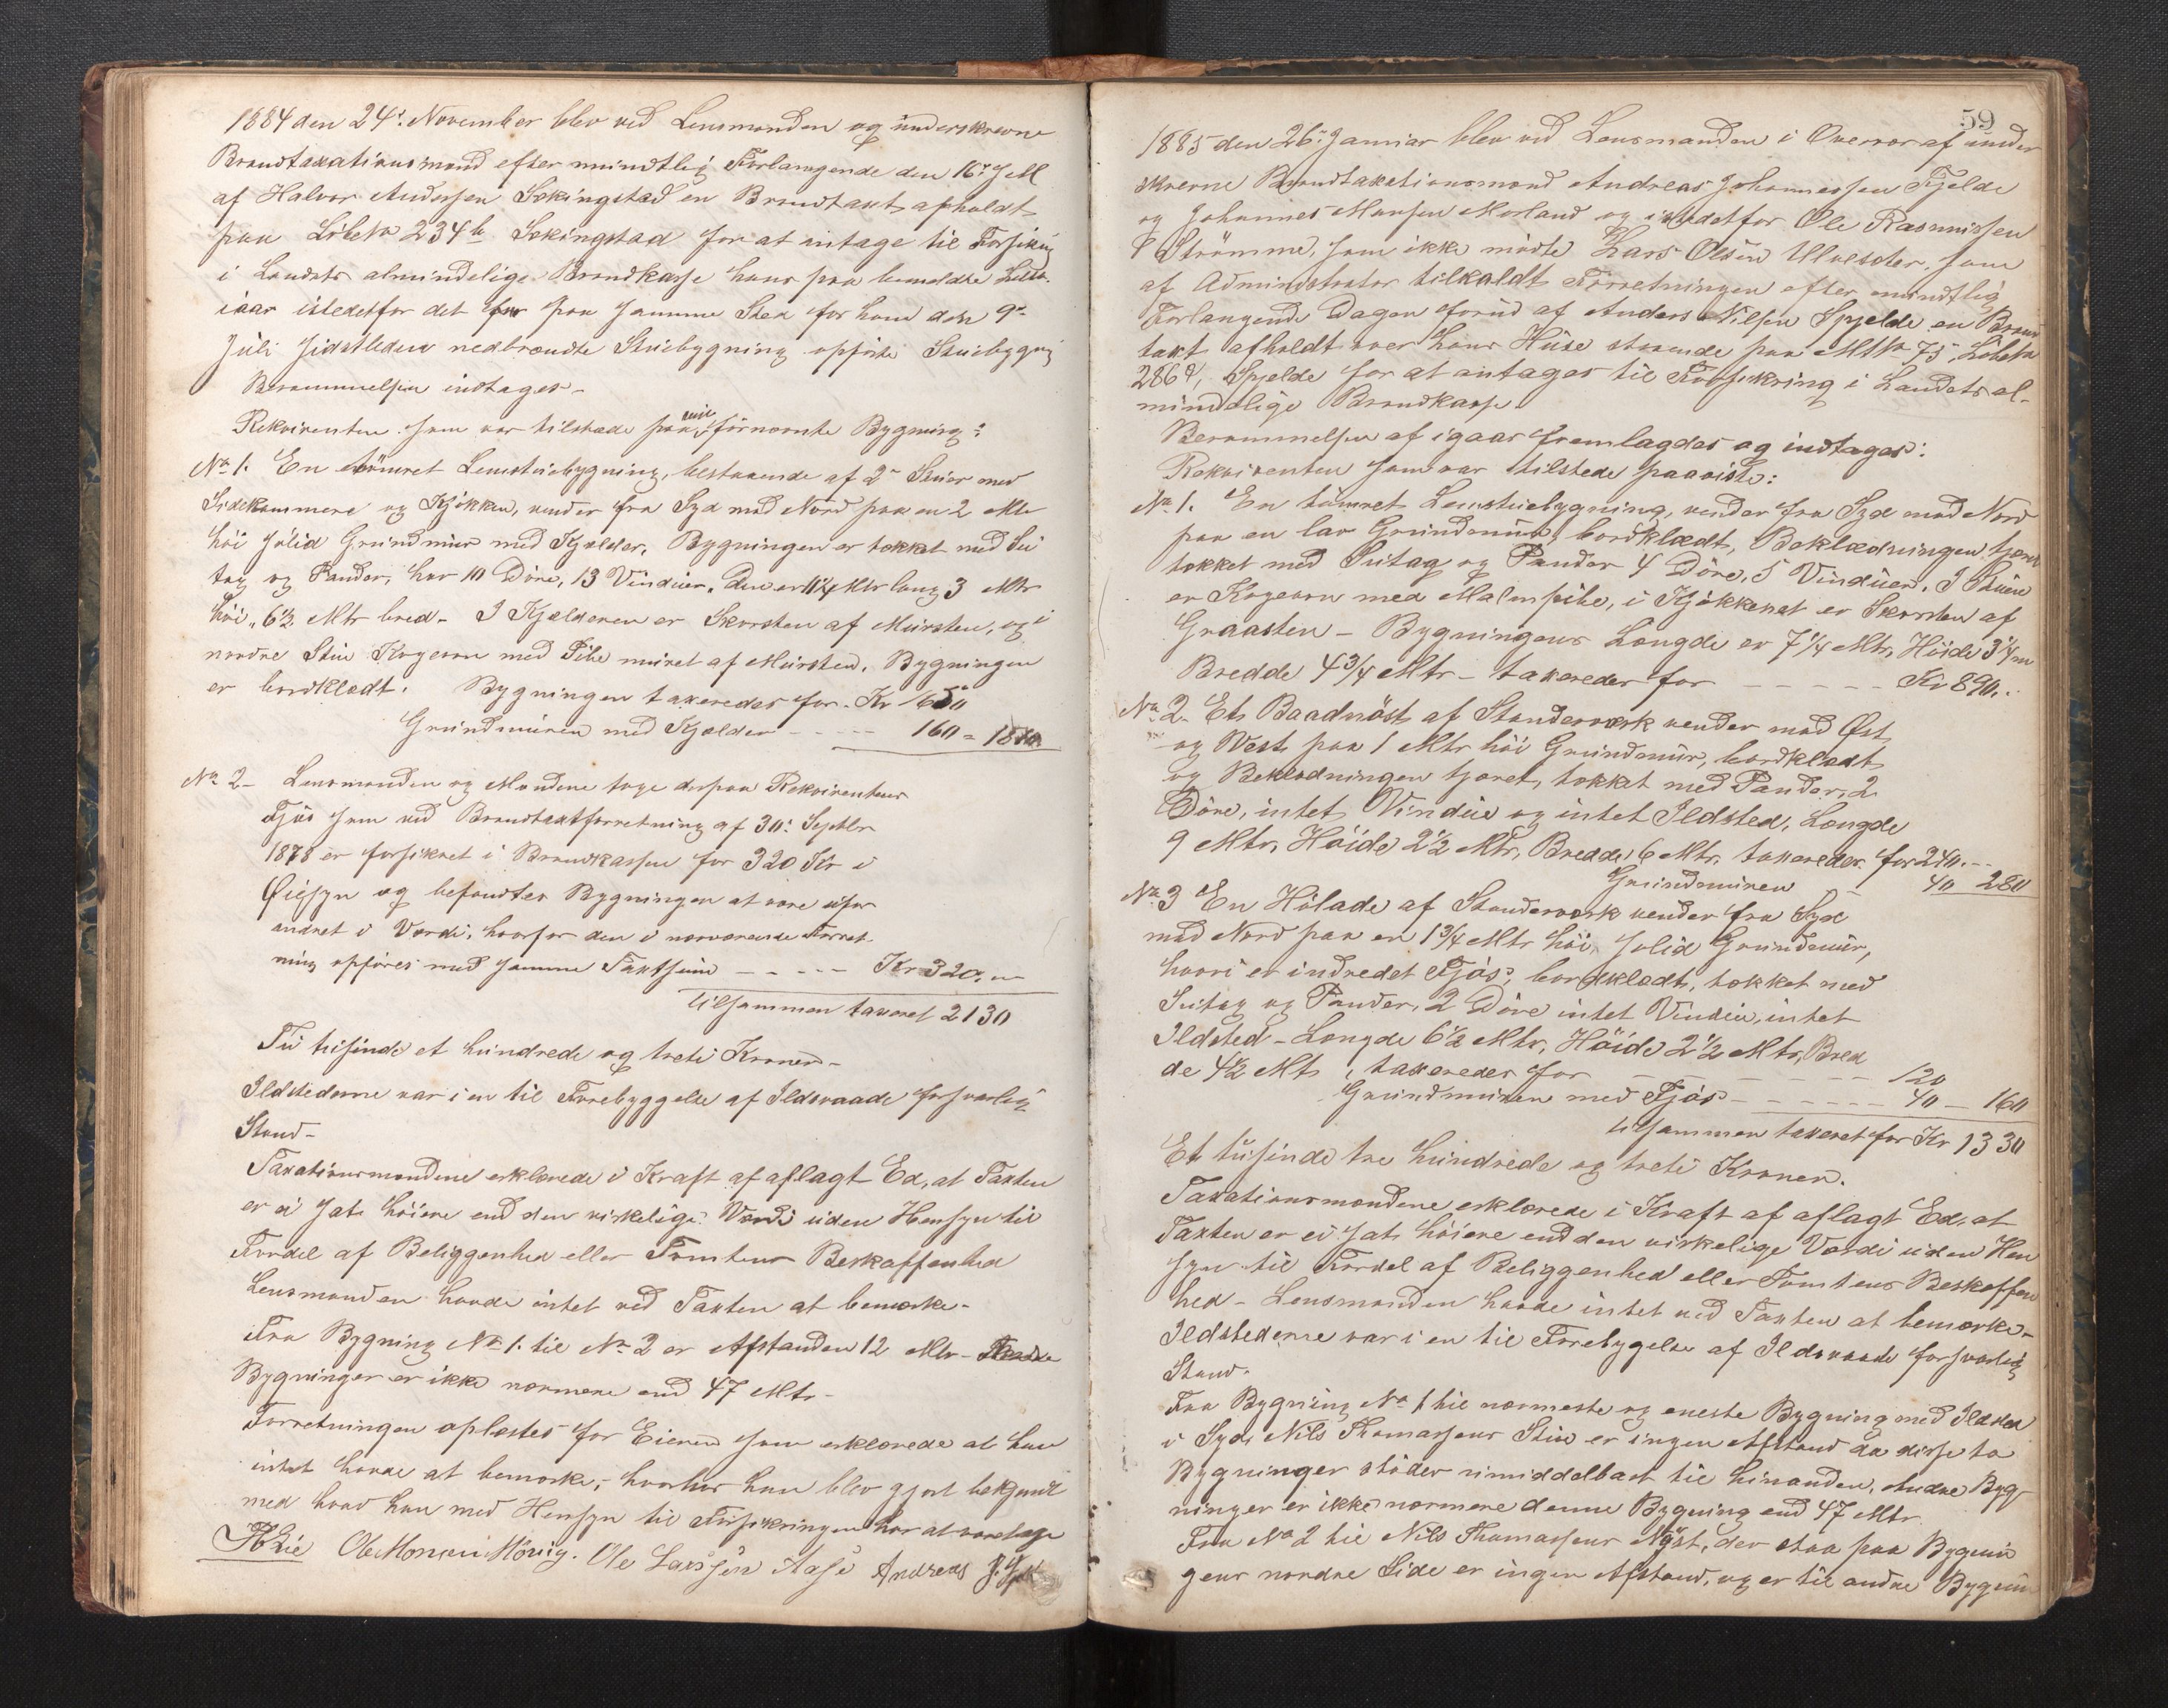 1884 den 24de November blev ved Lensmanden og underskrevne
Brandtaxationsmænd efter mundtlig Forlangende den 16de d. M.
af Halvor Andersen Sekingstad en Brandtaxt afholdt
paa Löbeno 234b Sekingstad for at antage til Forsikring
i Landets almindelige Brandkasse hans paa bemeldte Löbeno
iaar istedetfor det paa samme Sted for ham den 9de
Juli sidstleden nedbrændte Stuebygning opförte Stuebygning
Berammelsen indtages.
Rekvirenten som var tilstede paaviste fornævnte Bygning:
No 1. En tömret Lemstuebygning, bestaaende af 2de Stuer med
Sidekammere og Kjökken, vender fra Syd mod Nord paa en 2 Mtr
höi solid Grundmur med Kjælder. Bygningen er tækket med Su
tag og Pander, har 10 Döre, 13 Vinduer. Den er 11¼ Mtr lang 3 Mtr
höi, 6½ Mtr bred. I Kjælderen er Skorsten af Mursten, og i
nordre Stue Kogeovn med Pibe muret af Mursten. Bygningen
er bordklædt. Bygningen taxeredes for Kr 1650
Grundmuren med Kjælder - - - - 160 = 1810
No 2 - Lensmanden og Mændene toge derpaa Rekvirentens
Fjös som ved Brandtaxtforretning af 30te Septbr
1878 er forsikret i Brandkassen for 320 Kr i
Öiesyn og befandtes Bygningen at være ufor
andret i Værdi, hvorfor den i nærværende Forret-
ning opföres med samme Taxtsum - - - - - Kr 320,-
tilsammen taxeret 2130
To tusinde et hundrede og treti Kroner -
Ildstederne var i en til Forebyggelse af Ildsvaade forsvarlig
Stand -
Taxationsmændene erklærede i Kraft af aflagt Ed, at Taxten
er ei sat höiere end den virkelige Værdi uden Hensyn til
Fordel af Beliggenhed eller Tomtens Beskaffenhed
Lensmanden havde intet ved Taxten at bemærke -
Fra Bygning No 1 til No 2 er Afstanden 12 Mtr - Andre
Bygninger er ikke nærmere end 47 Mtr -
Forretningen oplæstes for Eieren som erklærede at han
intet havde at bemærke, hvorhos han blev gjort bekjendt
med hvad han med Hensyn til Forsikringen har at varetage
Ole Monsen Mövig. Ole Larssen Aase Andreas J.
59
1885 den 26de Januar blev ved Lensmanden i Overvær af under
skrevne Brandtaxationsmænd Andreas Johannessen Fjelde
og Johannes Monsen Morland og istedetfor Ole Rasmussen
Strömme, som ikke mödte Lars Olsen Ulveseter, som
af Administrator tilkaldt Forretningen efter mundtlig
Forlangende Dagen forud af Anders Nilsen Spjelde en Brand
taxt afholdt over hans Huse staaende paa Mtno 75, Löbeno
286d, Spjelde for at antages til Forsikring i Landets al-
mindelige Brandkasse.
Berammelsen af igaar fremlagdes og indtages:
Rekvirenten som var tilstede paaviste:
No 1. En tömret Lemstuebygning, vender fra Syd mod Nord
paa en lav Grundmur, bordklædt, Beklædningen tjæret
tækket med Sutag og Pander 4 Döre, 5 Vinduer. I Stuen
er Kogeovn med Malmpibe, i Kjökkenet er Skorsten af
Graasten - Bygningens Længde er 7¼ Mtr, Höide 3¼ m
Bredde 4¾ Mtr - taxeredes for - - - - - Kr 890.
No 2. Et Baadnöst af Standerværk vender mod Öst
og Vest paa 1 Mtr höi Grundmur, bordklædt
og Beklædningen tjæret, tækket med Pander, 2
Döre, intet Vindue og intet Ildsted, Længde
9 Mtr, Höide 2½ Mtr, Bredde 6 Mtr. taxeredes for 240.--
Grundmuren 40 280
No 3 En Hölade af Standerværk vender fra Syd
mod Nord paa en 1¾ Mtr höi, solid Grundmur,
hvori er indredet Fjös, bordklædt, tækket med
Sutag og Pander, 2 Döre intet Vindue, intet
Ildsted - Længde 6½ Mtr, Höide 2½ Mtr, Bred
de 4½ Mtr, taxeredes for - - - - - - 120
Grundmuren med Fjös - - - - - - 40 - 160
tilsammen taxeret for Kr 1330
Et tusinde tre hundrede og treti Kroner.
Taxationsmændene erklærede i Kraft af aflagt Ed, at
Taxten er ei sat höiere end den virkelige Værdi uden Hen
syn til Fordel af Beliggenhed eller Tomtens Beskaffen
hed - Lensmanden havde intet ved Taxten at bemærke -
Ildstederne var i en til Forebygelse af Ildsvaade forsvarlig
Stand.
Fra Bygning No 1 til nærmeste og eneste Bygning med Ildsted
i Syd, Nils Thomassens Stue er ingen Afstand da disse to
Bygninger stöder umiddelbart til hinanden, Andre Byg-
ninger er ikke nærmere denne Bygning end 47 Mtr.
Fra No 2 til Nils Thomassens Nöst, der staa paa Bygnin
gens nordre Side er ingen Afstand, og er til andre Bygnin